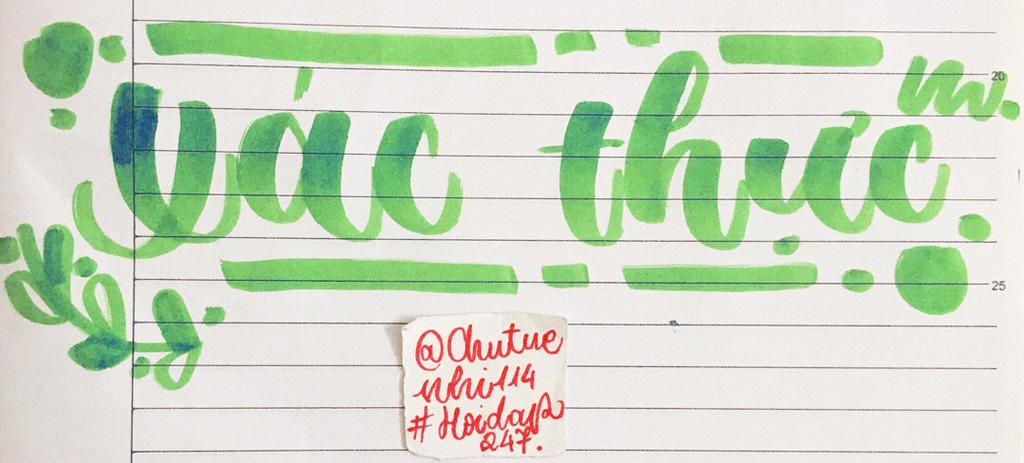 Xác thực
20
25
@Chutue
nhi114
#Hoidap
247.